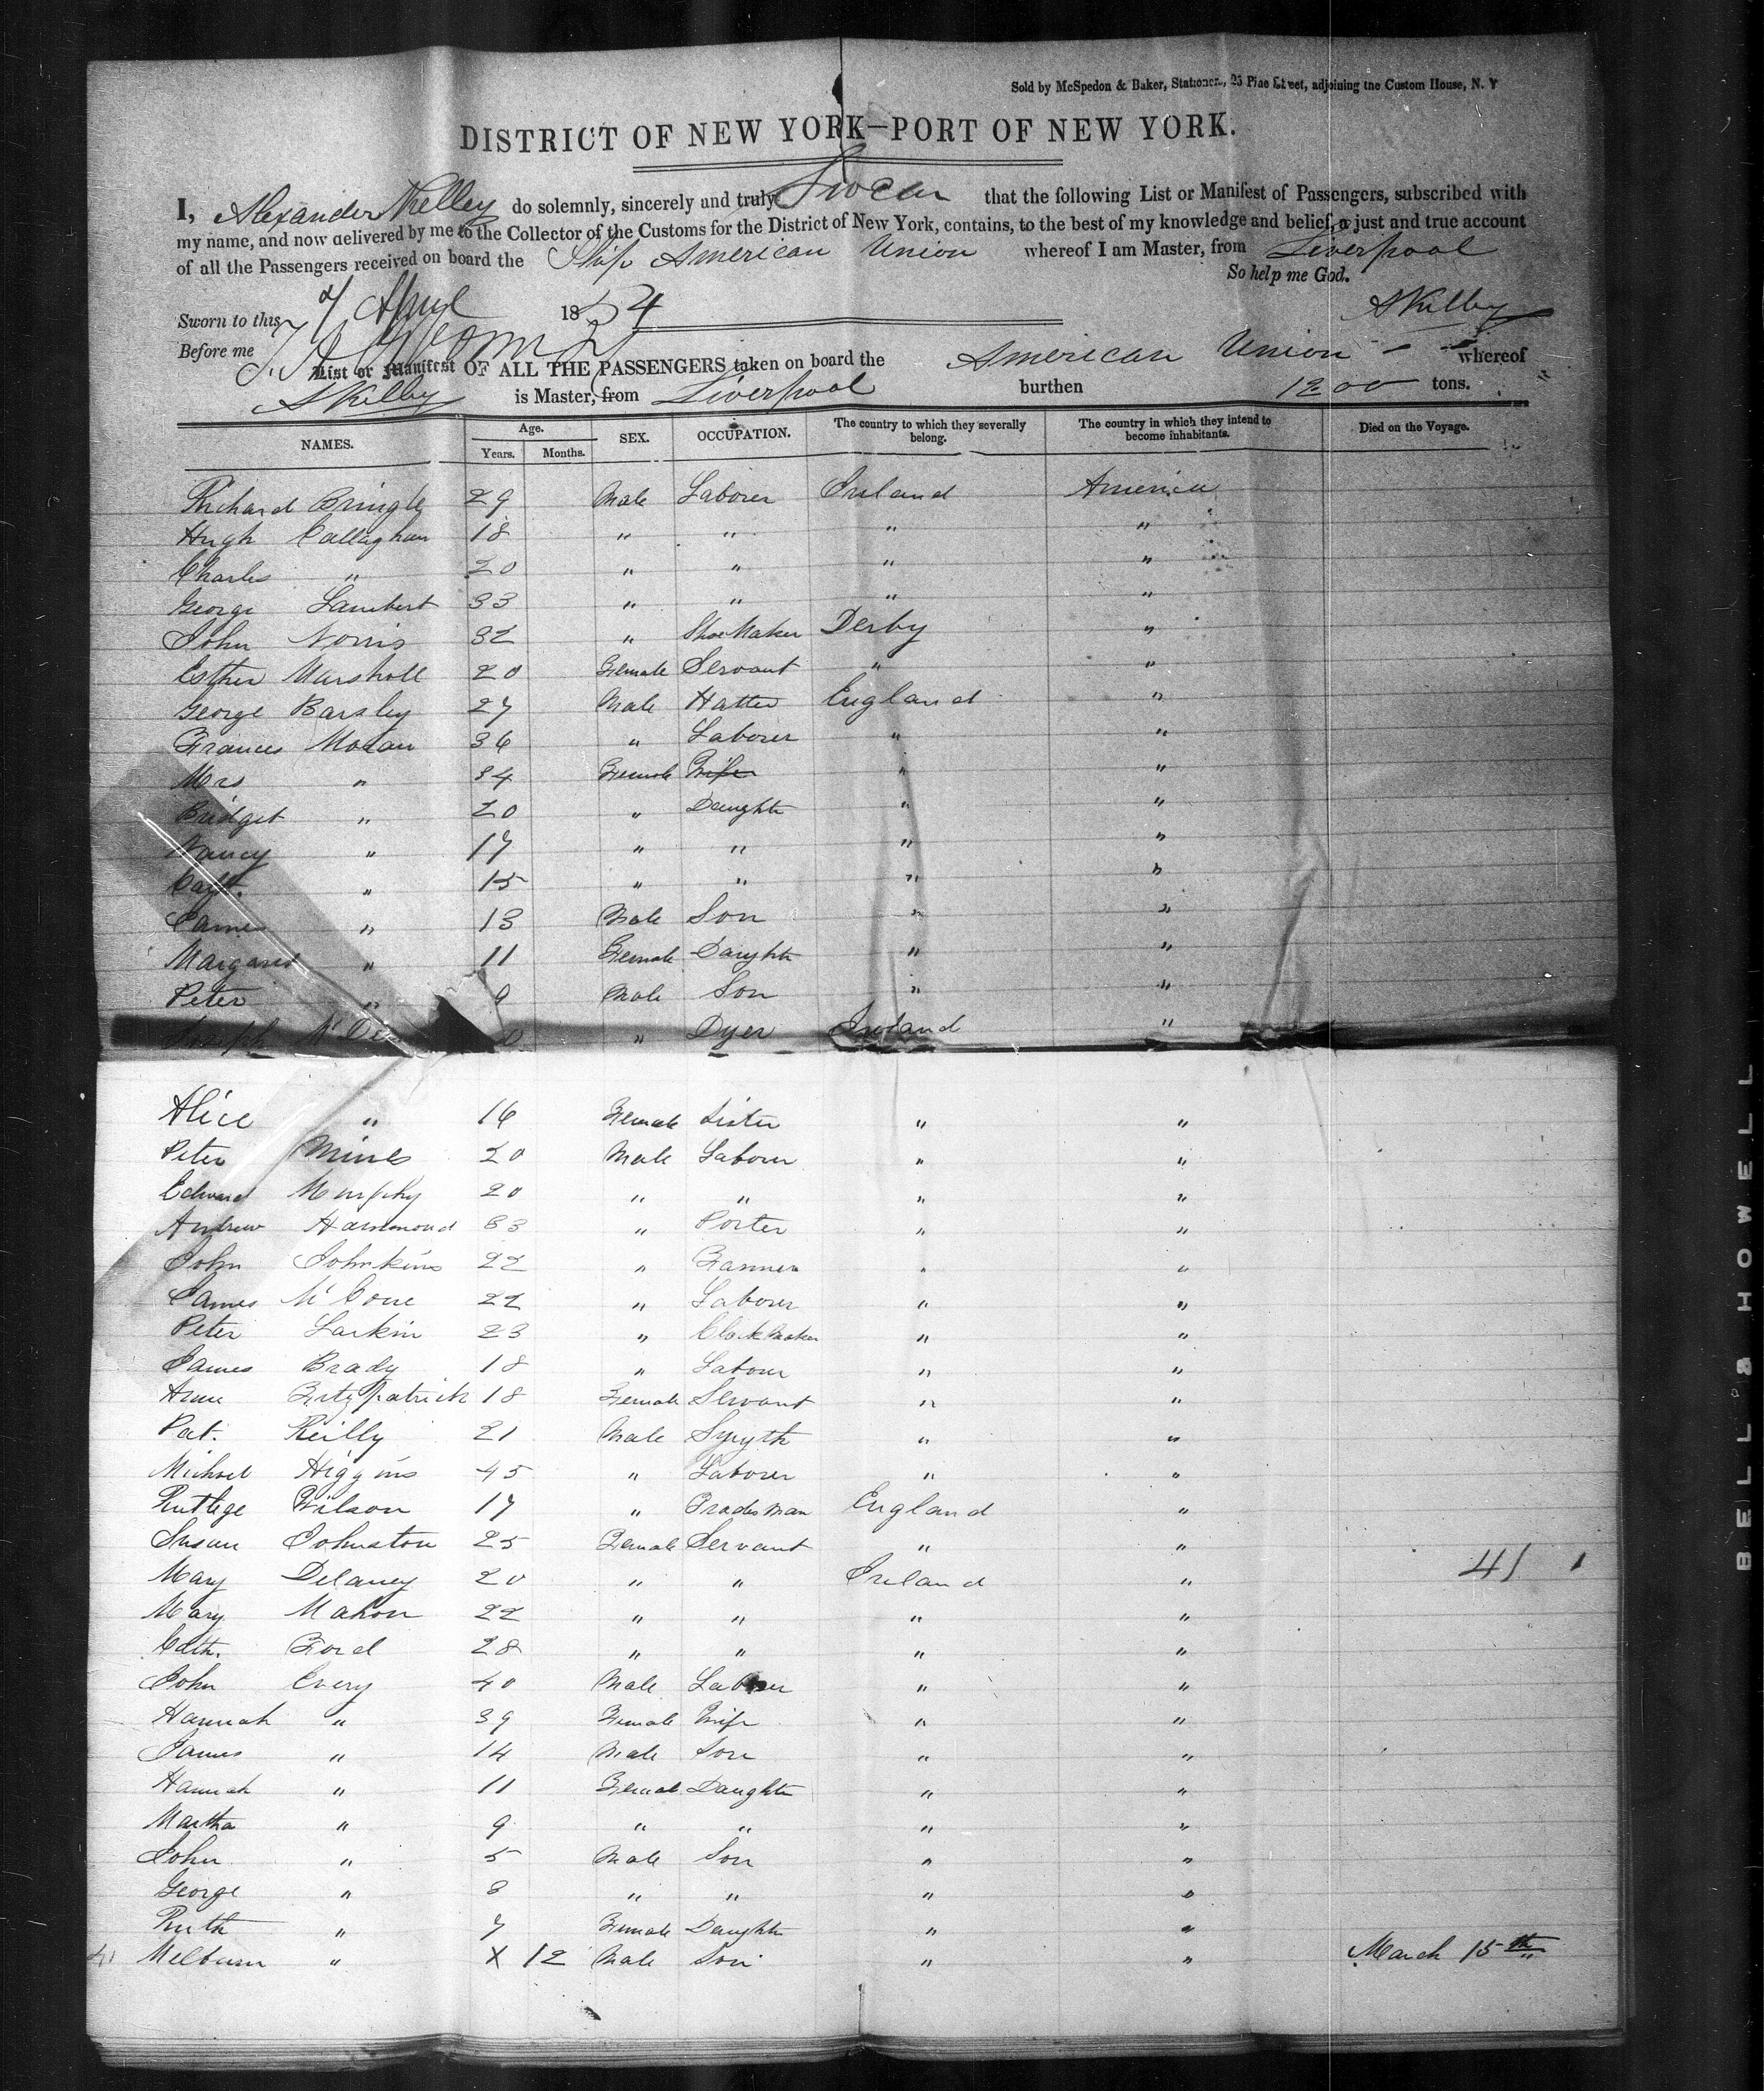 Sold by McSpedon & Baker, Stationers, 25 Pine Street, adjoining the Custom House, N. Y
DISTRICT OF NEW YORK—PORT OF NEW YORK.
I, Alexander Kelley do solemnly, sincerely and truly Swear that the following List or Manifest of Passengers, subscribed with
my name, and now delivered by me to the Collector of the Customs for the District of New York, contains, to the best of my knowledge and belief, a just and true account
of all the Passengers received on board the Ship American Union whereof I am Master, from Liverpool
So help me God.
Sworn to this 7 April 1854
AKelley
Before me
List or Manifest OF ALL THE PASSENGERS taken on board the American Union whereof
AKelley is Master, from Liverpool burthen 1200 tons.
NAMES. Age. Years. Months. SEX. OCCUPATION. The country to which they severally belong. The country in which they intend to become inhabitants. Died on the Voyage.
Richard Bringle 29 Male Laborer Ireland America
Hugh Callaghan 18 " " " "
Charles " 20 " " " "
George Lambert 33 " " " "
John Norris 32 " Shoe Maker Derby "
Esther Marshall 20 Female Servant " "
George Barsley 27 Male Hatter England "
Frances Moran 36 " Laborer " "
Mrs " 34 Female Wife " "
Bridget " 20 " Daughtr " "
Nancy " 17 " " " "
Cath. " 15 " " " "
James " 13 Male Son " "
Margaret " 11 Female Daughtr " "
Peter " 9 Male Son " "
Joseph Mc " Dyer Ireland "
Alice " 16 Female Sister " "
Peter Mines 20 Male Laborer " "
Edward Murphy 20 " " " "
Andrew Hammond 33 " Porter " "
John Johnkins 22 " Farmer " "
James McCone 22 " Laborer " "
Peter Larkin 23 " Clock Maker " "
James Brady 18 " Laborer " "
Anne Fitzpatrick 18 Female Servant " "
Pat. Reilly 21 Male Smyth " "
Michael Higgins 45 " Laborer " "
Rutlege Wilson 17 " Tradesman England "
Susan Johnston 25 Female Servant " "
Mary Delaney 20 " " Ireland " 41
Mary Mahon 22 " " " "
Cath. Ford 28 " " " "
John Every 40 Male Laborer " "
Hannah " 39 Female Wife " "
James " 14 Male Son " "
Hannah " 11 Female Daughtr " "
Martha " 9 " " " "
John " 5 Male Son " "
George " 3 " " " "
Ruth " 7 Female Daughtr " "
41 Melburn " X 12 Male Son " " March 15th
BELL & HOWELL